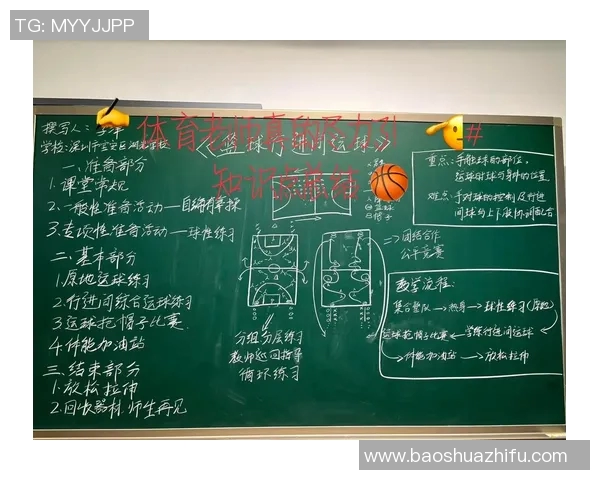 TG: MYYJJPP
体育老师真的尽力引
知识点总结
#
撰写人：李军
学校：深圳市宝安区湖学校
《篮球行进间运球》
一、准备部分
1.课堂常规
2.一般性准备活动—自编啦啦操
3.专项性准备活动—球性练习
二、基本部分
1.原地运球练习
2.行进间综合运球练习
3.运球抢帽子比赛
4.体能加油站
三、结束部分
1.放松拉伸
2.回收器材.师生再见
分组分层练习
教师巡回指导
循环练习
=>团结合作
公平竞赛
重点：手触球的部位，
运球时球与身体的位置
难点：手对球的控制及行进
间球与上下肢协调配合
教学流程：
集合整队→热身→球性练习(原地)
运球抢帽子比赛←学练行进间运球
→体能加油站→放松拉伸
www.baoshuazhifu.com